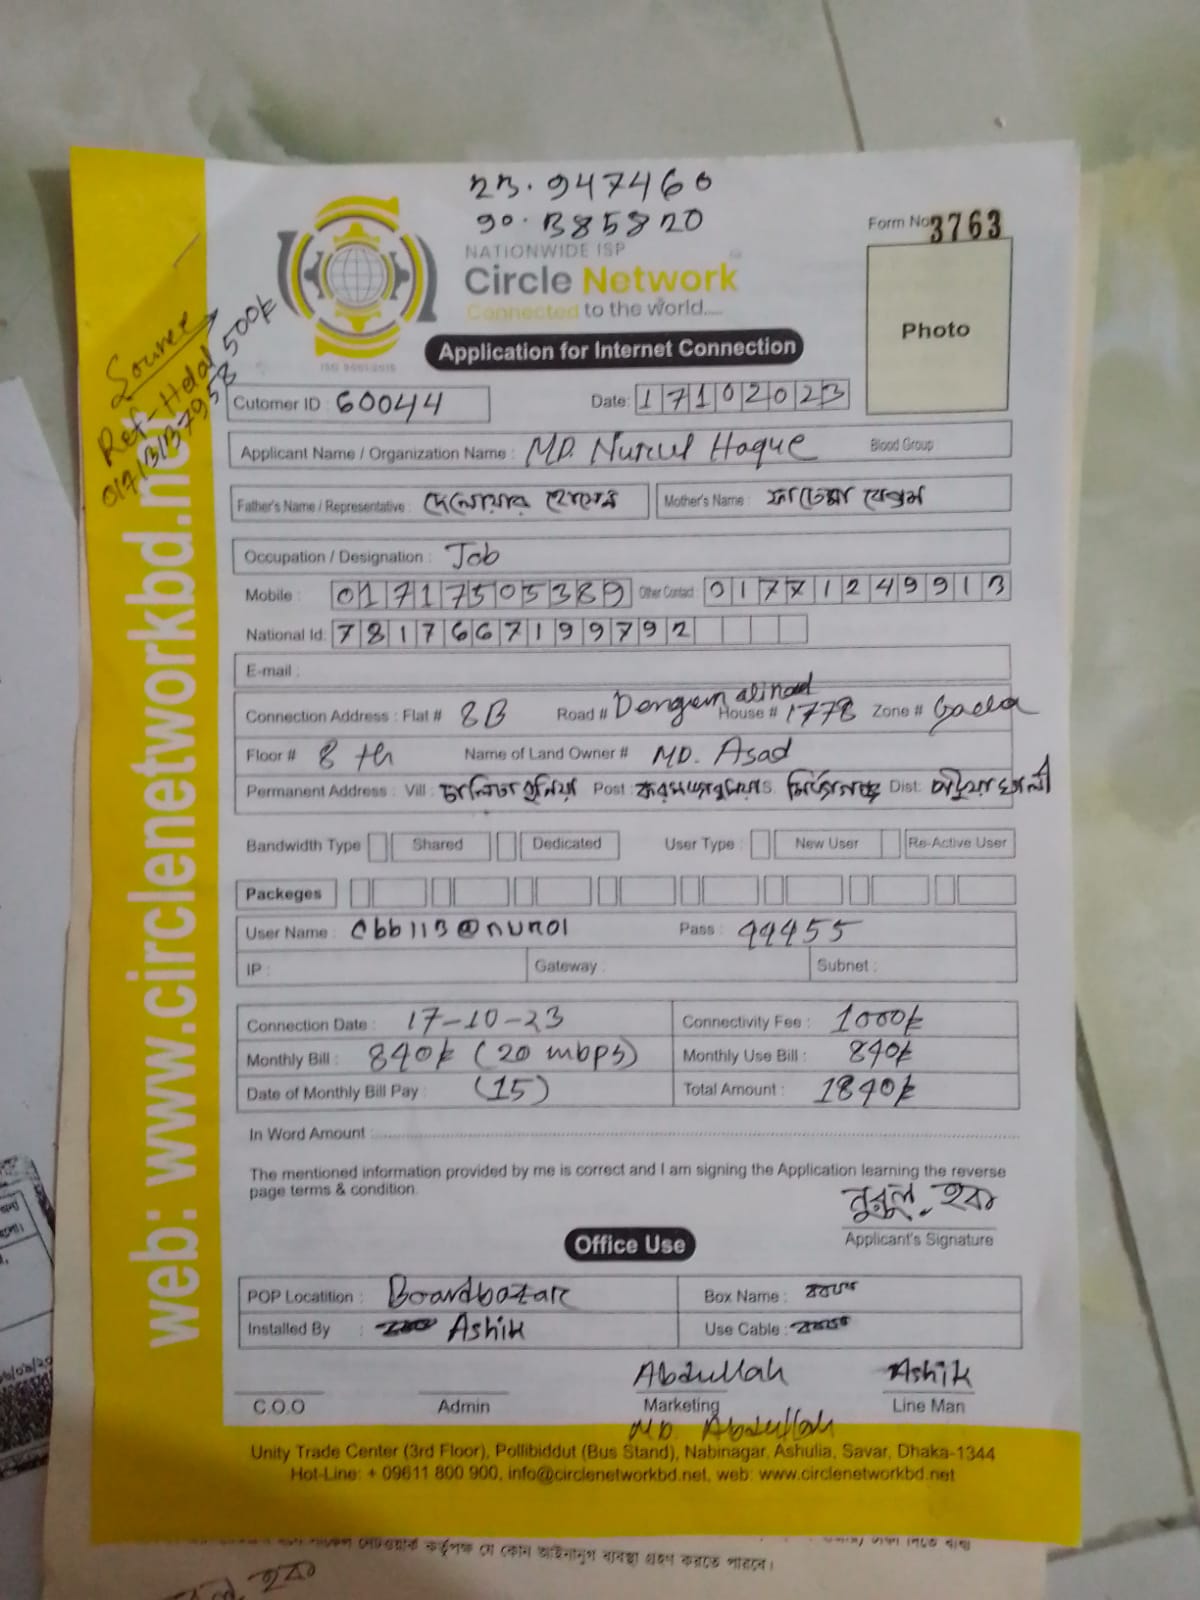 23.947460
90.385820
NATIONWIDE ISP
Form No 3763
Circle Network
Connected to the world....
ISO 9001:2015
Application for Internet Connection
Photo
Source
Ref-Helal 500৳
web: www.circlenetworkbd.net
Cutomer ID : 60044
Date: 17102023
Applicant Name / Organization Name : MD. Nurul Haque
Blood Group
Father's Name / Representative : দেলোয়ার হোসেন
Mother's Name : ফাতেমা বেগম
Occupation / Designation : Job
Mobile : 01717505389 Other Contact 01771249913
National Id: 7817667199792
E-mail :
Connection Address : Flat # 8B Road # House # 1778 Zone #
Floor # 8 th Name of Land Owner # MD. Asad
Permanent Address : Vill : Post : P.S. মির্জাগঞ্জ Dist: পটুয়াখালী
Bandwidth Type Shared Dedicated User Type : New User Re-Active User
Packeges
User Name : cbb113@nurol Pass : 44455
IP : Gateway : Subnet :
Connection Date : 17-10-23 Connectivity Fee : 1000৳
Monthly Bill : 840৳ (20 mbps) Monthly Use Bill : 840৳
Date of Monthly Bill Pay : (15) Total Amount : 1840৳
In Word Amount :
The mentioned information provided by me is correct and I am signing the Application learning the reverse
page terms & condition.
নুরুল হক
Applicant's Signature
Office Use
POP Locatition : Boardbazar Box Name :
Installed By : Ashik Use Cable :
Abdullah Ashik
C.O.O Admin Marketing Line Man
MD. Abdullah
Unity Trade Center (3rd Floor), Pollibiddut (Bus Stand), Nabinagar, Ashulia, Savar, Dhaka-1344
Hot-Line: + 09611 800 900, info@circlenetworkbd.net, web: www.circlenetworkbd.net
কর্তৃপক্ষ যে কোন আইনানুগ ব্যবস্থা গ্রহণ করতে পারবে।